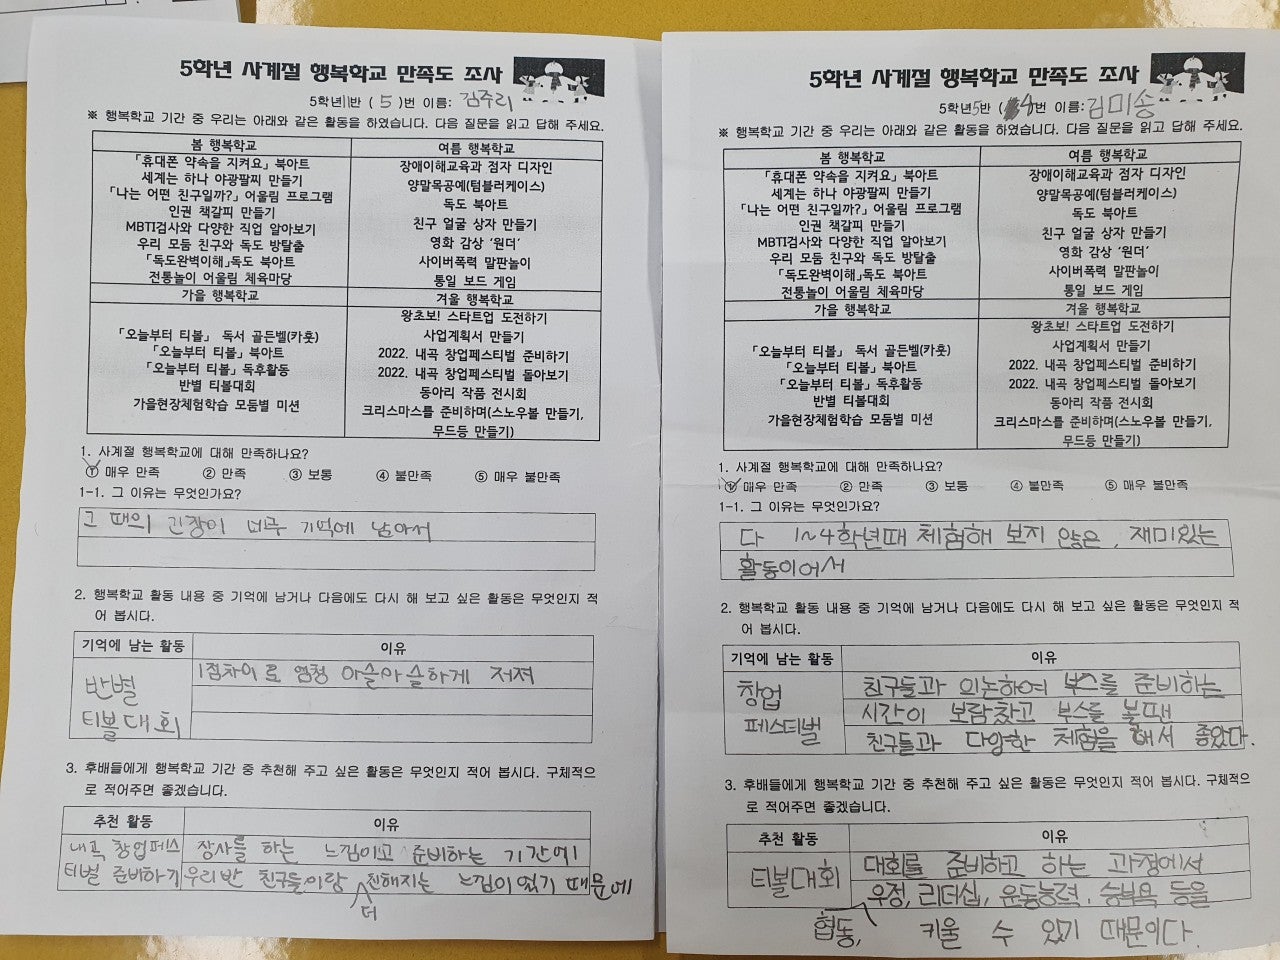 5학년 사계절 행복학교 만족도 조사
5학년 11반 ( 5 )번 이름: 김주리
※ 행복학교 기간 중 우리는 아래와 같은 활동을 하였습니다. 다음 질문을 읽고 답해 주세요.
봄 행복학교
「휴대폰 약속을 지켜요」 북아트
세계는 하나 야광팔찌 만들기
「나는 어떤 친구일까?」 어울림 프로그램
인권 책갈피 만들기
MBTI검사와 다양한 직업 알아보기
우리 모둠 친구와 독도 방탈출
「독도완벽이해」독도 북아트
전통놀이 어울림 체육마당
여름 행복학교
장애이해교육과 점자 디자인
양말목공예(텀블러케이스)
독도 북아트
친구 얼굴 상자 만들기
영화 감상 '원더'
사이버폭력 말판놀이
통일 보드 게임
가을 행복학교
「오늘부터 티볼」 독서 골든벨(카훗)
「오늘부터 티볼」 북아트
「오늘부터 티볼」 독후활동
반별 티볼대회
가을현장체험학습 모둠별 미션
겨울 행복학교
왕초보! 스타트업 도전하기
사업계획서 만들기
2022. 내곡 창업페스티벌 준비하기
2022. 내곡 창업페스티벌 돌아보기
동아리 작품 전시회
크리스마스를 준비하며(스노우볼 만들기,
무드등 만들기)
1. 사계절 행복학교에 대해 만족하나요?
① 매우 만족 ② 만족 ③ 보통 ④ 불만족 ⑤ 매우 불만족
1-1. 그 이유는 무엇인가요?
그 때의 긴장이 너무 기억에 남아서
2. 행복학교 활동 내용 중 기억에 남거나 다음에도 다시 해 보고 싶은 활동은 무엇인지 적
어 봅시다.
기억에 남는 활동 이유
반별
티볼대회
1점차이로 엄청 아슬아슬하게 저져
3. 후배들에게 행복학교 기간 중 추천해 주고 싶은 활동은 무엇인지 적어 봅시다. 구체적으
로 적어주면 좋겠습니다.
추천 활동 이유
내곡 창업페스
티벌 준비하기
장사를 하는 느낌이고 준비하는 기간에
우리반 친구들이랑 더 친해지는 느낌이 었기 때문에
5학년 사계절 행복학교 만족도 조사
5학년 5반 ( 4)번 이름: 김미송
※ 행복학교 기간 중 우리는 아래와 같은 활동을 하였습니다. 다음 질문을 읽고 답해 주세요.
봄 행복학교
「휴대폰 약속을 지켜요」 북아트
세계는 하나 야광팔찌 만들기
「나는 어떤 친구일까?」 어울림 프로그램
인권 책갈피 만들기
MBTI검사와 다양한 직업 알아보기
우리 모둠 친구와 독도 방탈출
「독도완벽이해」독도 북아트
전통놀이 어울림 체육마당
여름 행복학교
장애이해교육과 점자 디자인
양말목공예(텀블러케이스)
독도 북아트
친구 얼굴 상자 만들기
영화 감상 '원더'
사이버폭력 말판놀이
통일 보드 게임
가을 행복학교
「오늘부터 티볼」 독서 골든벨(카훗)
「오늘부터 티볼」 북아트
「오늘부터 티볼」 독후활동
반별 티볼대회
가을현장체험학습 모둠별 미션
겨울 행복학교
왕초보! 스타트업 도전하기
사업계획서 만들기
2022. 내곡 창업페스티벌 준비하기
2022. 내곡 창업페스티벌 돌아보기
동아리 작품 전시회
크리스마스를 준비하며(스노우볼 만들기,
무드등 만들기)
1. 사계절 행복학교에 대해 만족하나요?
① 매우 만족 ② 만족 ③ 보통 ④ 불만족 ⑤ 매우 불만족
1-1. 그 이유는 무엇인가요?
다 1~4학년때 체험해 보지 않은, 재미있는
활동이어서
2. 행복학교 활동 내용 중 기억에 남거나 다음에도 다시 해 보고 싶은 활동은 무엇인지 적
어 봅시다.
기억에 남는 활동 이유
창업
페스티벌
친구들과 의논하여 부스를 준비하는
시간이 보람찼고 부스를 볼땐
친구들과 다양한 체험을 해서 좋았다.
3. 후배들에게 행복학교 기간 중 추천해 주고 싶은 활동은 무엇인지 적어 봅시다. 구체적으
로 적어주면 좋겠습니다.
추천 활동 이유
티볼대회
대회를 준비하고 하는 과정에서
협동, 우정, 리더십, 운동능력, 승부욕 등을
키울 수 있기 때문이다.